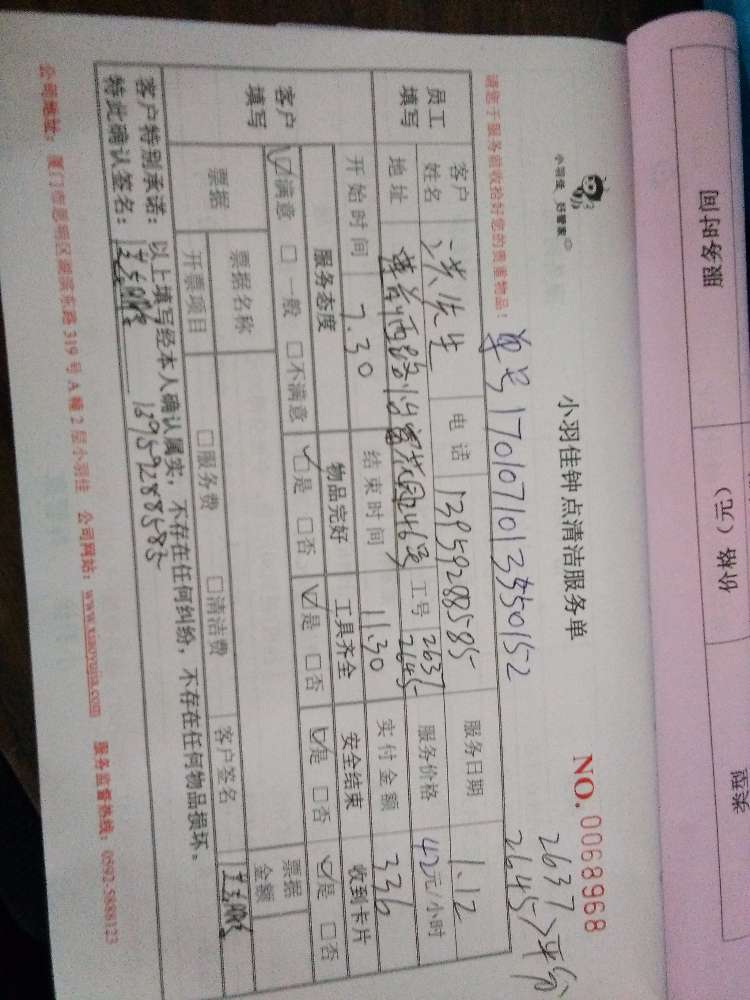 服务时间 价格（元）
小羽佳 好管家
小羽佳钟点清洁服务单
NO. 0068968
2637
2645 平分
请您于服务前收拾好您的贵重物品！
单号
员工填写
客户姓名 洪先生 电话 13959288585 服务日期 1.12
地址 工号 2637 2645 服务价格 42元/小时
开始时间 7.30 结束时间 11.30 实付金额 336
客户填写
服务态度 物品完好 工具齐全 安全结束 收到卡片
☑满意 □一般 □不满意 ☑是 □否 ☑是 □否 ☑是 □否 ☑是 □否
票据 票据名称 票据金额
开票项目 □服务费 □清洁费 客户签名
客户特别承诺：以上填写经本人确认属实，不存在任何纠纷，不存在任何物品损坏。
特此确认签名： 13959288585
公司地址：厦门市思明区湖滨东路319号A幢2层小羽佳 公司网站：www.xiaoyujia.com 服务监督热线：0592-5888123